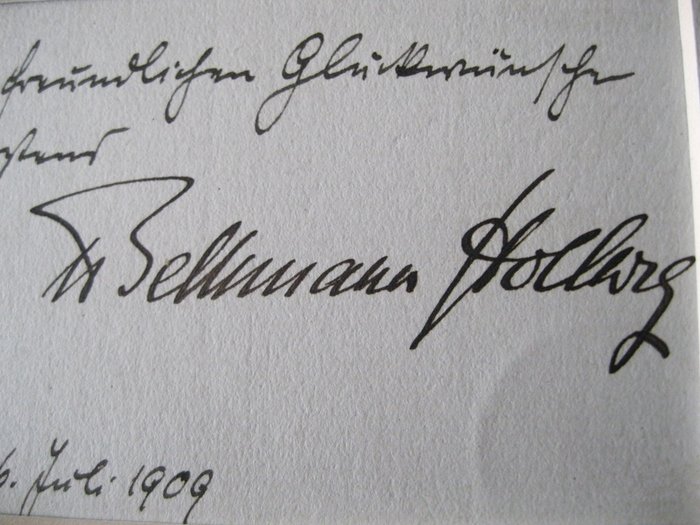 freundlichen Glückwünsche
stens
v Bethmann Hollweg
6. Juli 1909